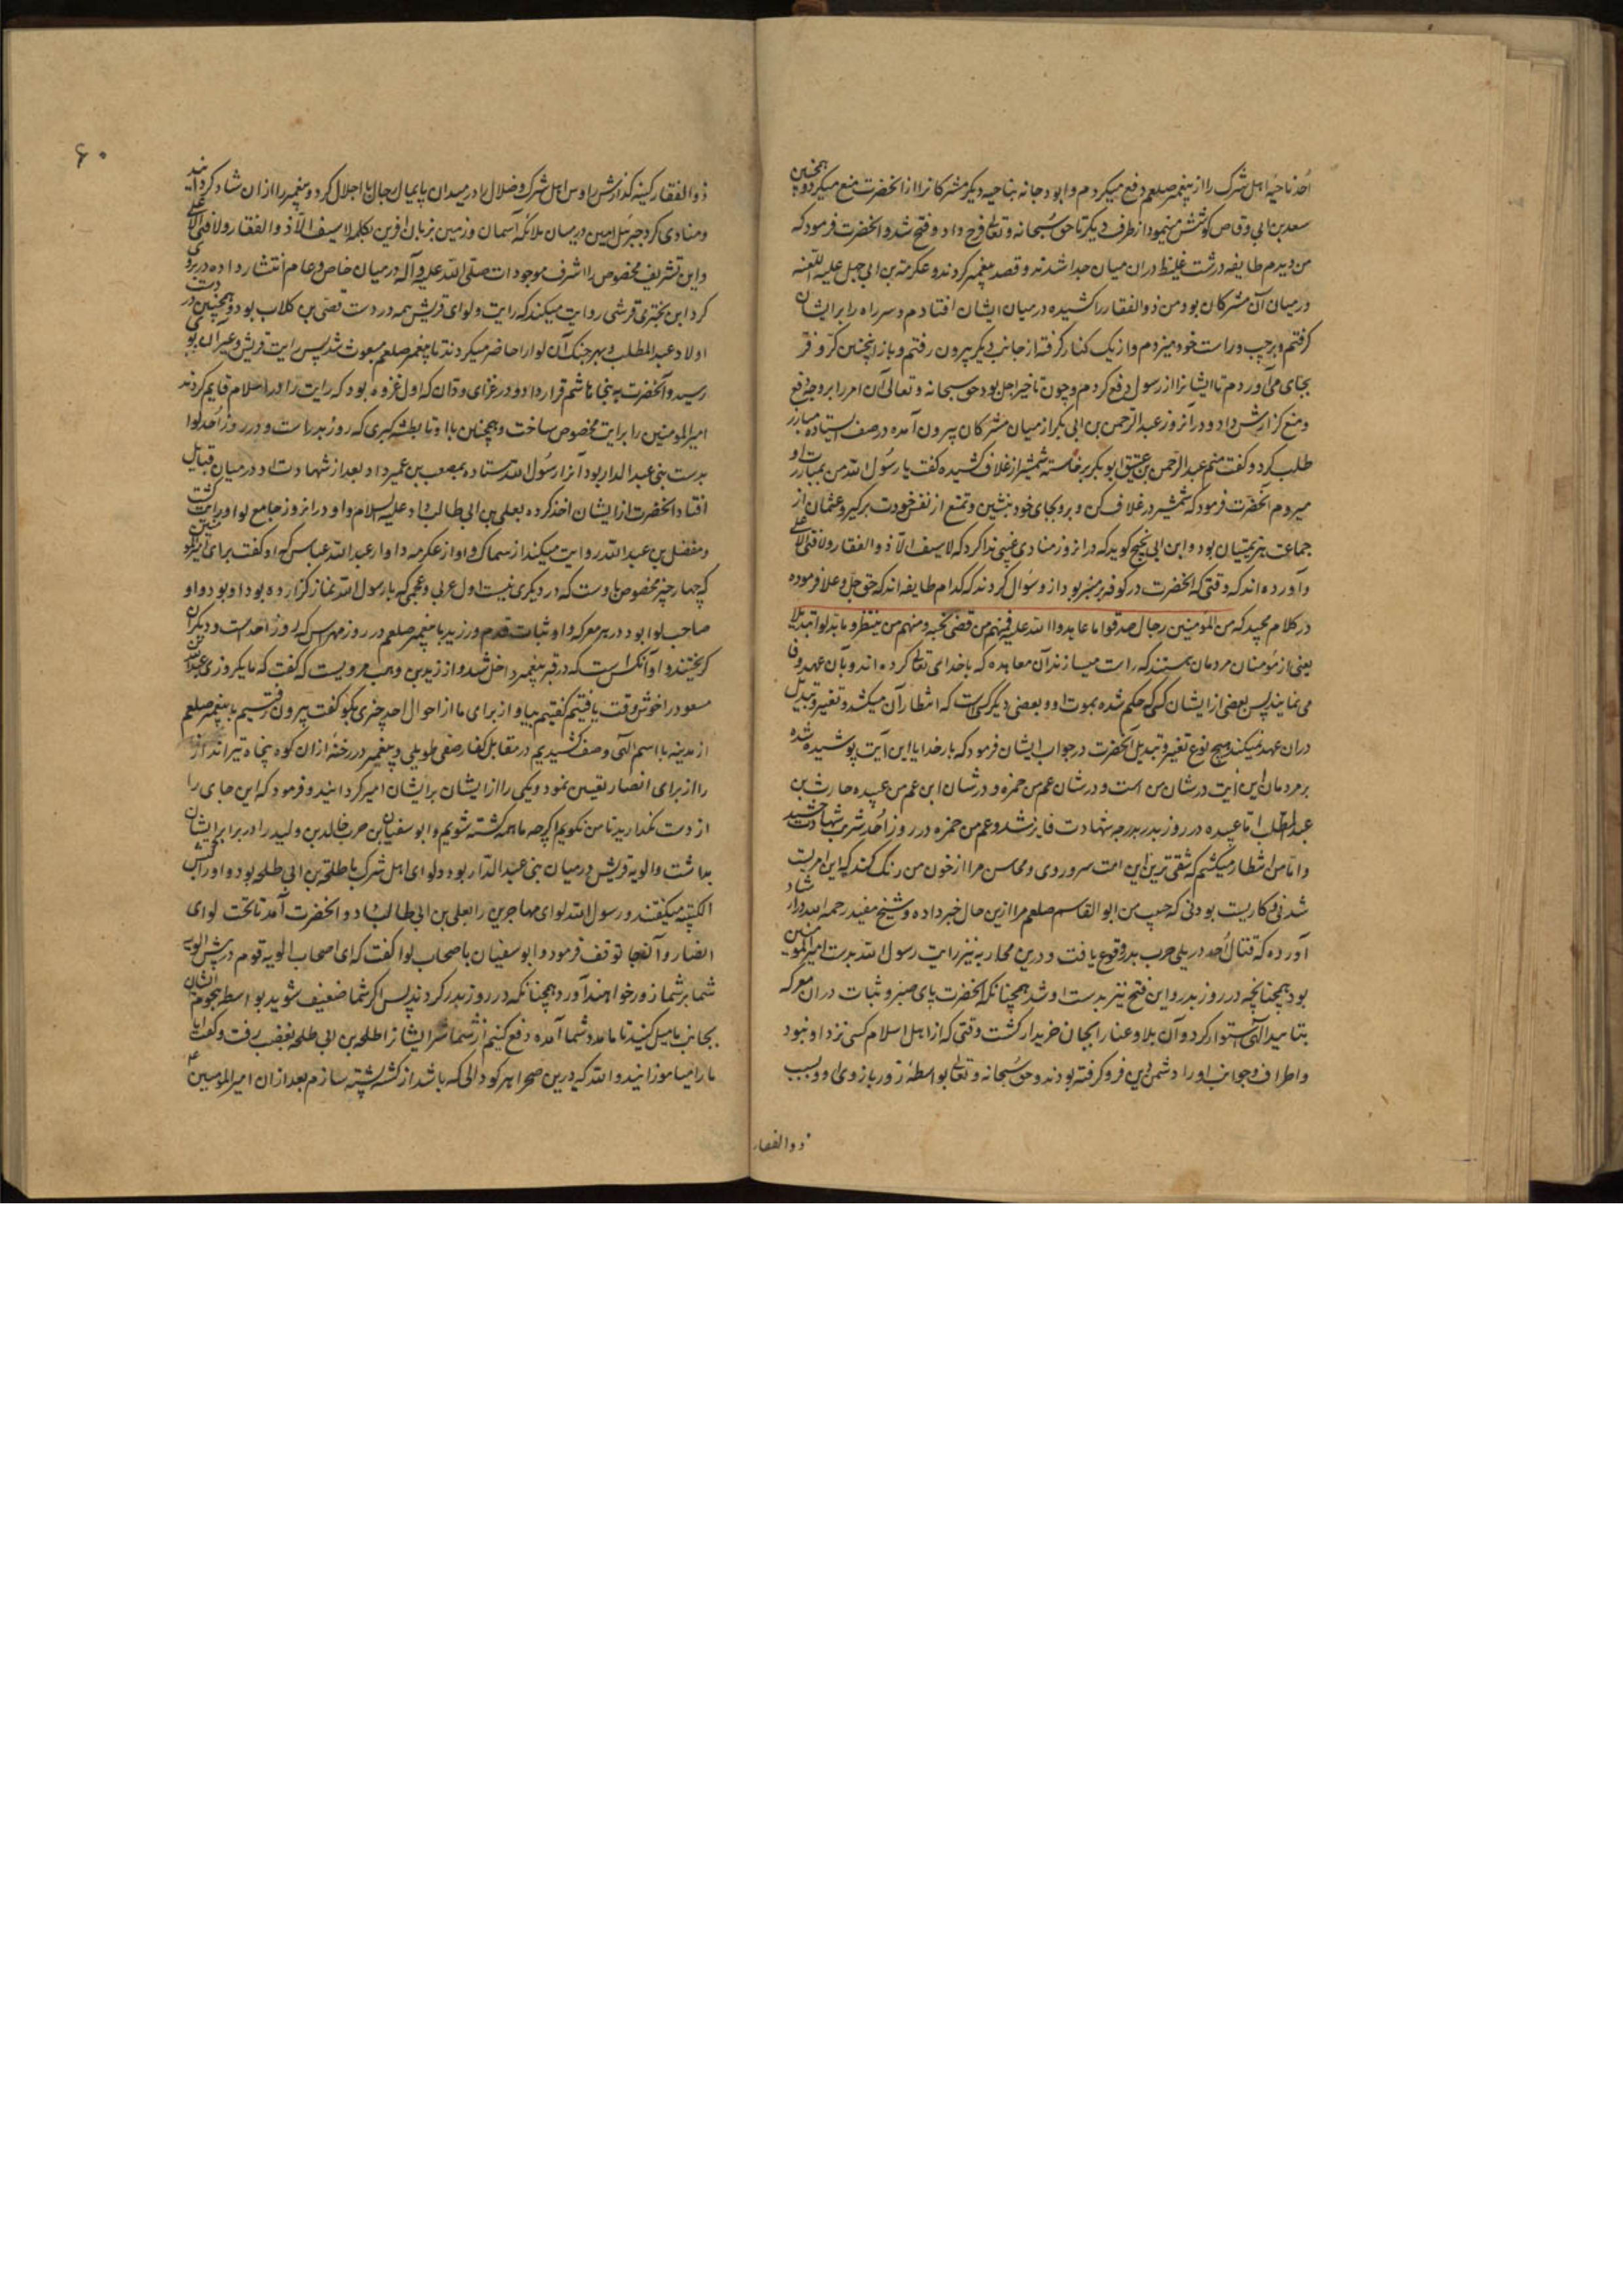 اُحد ناحیهٔ اهل شرک را از پیغمبر صلعم دفع میکردم و ابو دجانه بناحیه دیگر مشرکانرا از انحضرت منع میکرد و همچنین
سعد بن ابی وقاص کوشش مینمود از طرف دیگر تا حق سبحانه و تعالی فرج داد و فتح شد و انحضرت فرمود که
من دیدم طایفه درشت غلیظ دران میان جدا شدند و قصد پیغمبر کردند و عکرمة بن ابی جهل علیه اللعنه
در میان آن مشرکان بود من ذو الفقار را کشیده در میان ایشان افتادم و سر راه را بر ایشان
کرفتم و بر چپ و راست خود میزدم و از یک کنار کرفته از جانب دیگر بیرون رفتم و باز اینچنین کرّ و فرّ
بجای می آوردم تا ایشانرا از رسول دفع کردم و چون تاخیر اجل بود حق سبحانه و تعالی آن امر را بروجه دفع
و منع کزارش داد و در آنروز عبد الرحمن بن ابی بکر از میان مشرکان بیرون آمده در صف ایستاده مبارز
طلب کرد و کفت منم عبد الرحمن بن عتیق ابو بکر برخاسته شمشیر از غلاف کشیده کفت یا رسول الله من بمبارزت او
میروم آنحضرت فرمود که شمشیر در غلاف کن و برو بجای خود بنشین و تمتع از نفس خودت برکیر و عثمان از
جماعت هزیمتیان بود و ابن ابی نجیح کوید که در انروز منادی غیبی ندا کرد که لا سیف الّا ذو الفقار و لا فتی الا علی
و آورده اند که وقتی که انحضرت در کوفه بر منبر بود از و سُوال کردند که کدام طایفه اند که حق جل و علا فرموده
در کلام مجید که من المؤمنین رجال صدقوا ما عاهدوا الله علیه فمنهم من قضی نحبه و منهم من ینتظر و ما بدلوا تبدیلا
یعنی از مؤمنان مردمان هستند که راست میسازند آن معاهده که باخدای تعالی کرده اند و بآن عهد وفا
می نمایند پس بعضی از ایشان کسی که حکم شده بموت او و بعضی دیگر کسی است که انتظار آن میکشد و تغییر و تبدیل
دران عهد نمیکنند هیچ نوع تغییر و تبدیل آنحضرت در جواب ایشان فرمود که بار خدایا این آیت پوشیده شده
بر مردمان این آیت در شان من است و در شان عم من حمزه و در شان ابن عم من عبیده حارث بن
عبد المطلب اما عبیده در روز بدر بدرجه شهادت فایز شد و عم من حمزه در روز اُحد شربت شهادت چشید
و اما من انتظار میکشم که شقی ترین این امت سر و روی و محاسن مرا از خون من رنک کند که این امریست
شدنی و کاریست بودنی که حبیب من ابو القاسم صلعم مرا ازین حال خبر داده و شیخ مفید رحمه الله در ارشاد
آورده که قتال اُحد در پی حرب بدر وقوع یافت و درین محاربه نیز رایت رسول الله بدست امیر المومنین
بود همچنانچه در روز بدر و این فتح نیز بدست او شد همچنانکه انحضرت پای صبر و ثبات دران معرکه
بتایید الهی استوار کرد و آن بلا و عنا را بجان خریدار کشت وقتی که از اهل اسلام کسی نزد او نبود
و اطراف و جوانب او را دشمن دین فرو کرفته بودند و حق سُبحانه و تعالی بواسطهٔ زور بازوی او و بسبب
ذو الفقار
۶۰
ذو الفقار کینه کذارش راوس اهل شرک و ضلال را در میدان پایمال رجال با اجلال کرد و پیغمبر را ازان شاد کردانید
و منادی کرد جبرئیل امین در میان ملائکهٔ آسمان و زمین بزبان افرین بکلمه لا سیف الّا ذو الفقار و لا فتی الا علی
و این تشریف مخصوص را اشرف موجودات صلی الله علیه و آله در میان خاص و عام انتشار داده در بر وی
کرد ابن بختری قرشی روایت میکند که رایت و لوای قریش همه در دست قصی بن کلاب بود و همچنین در دست
اولاد عبد المطلب و بهر جنک آن لوا را حاضر میکردند تا پیغمبر صلعم مبعوث شد پس رایت قریش و غیر آن بوی
رسید و آنحضرت به بنی هاشم قرار داد و در غزای ودان که اول غزوه بود که رایت را در اسلام قایم کردند
امیر المومنین را برایت مخصوص ساخت و همچنین با او تا بطشه کبری که روز بدر است و در روز اُحد لوا
بدست بنی عبد الدار بود آنرا رسُول الله ستاده بمصعب بن عمیر داد بعد از شهادت او در میان قبایل
افتاد انحضرت از ایشان اخذ کرده بعلی بن ابی طالب داد علیه السلام و او در انروز جامع لوا و رایت کشت
و مفضل بن عبد الله روایت میکند از سماک و او از عکرمه و او از عبد الله عباس که او کفت برای
که چهار چیز مخصوص باوست که در دیگری نیست اول عربی و عجمی که با رسول الله نماز کزارده بود او بود و او
صاحب لوا بود در هر معرکه و او ثبات قدم ورزید با پیغمبر صلعم در روز مهراس که روز اُحد است و دیکران
کریختند و او آنکس است که در قبر پیغمبر داخل شد و از زید بن وهب مرویست که کفت که ما یکروزی عبد الله بن
مسعود را خوش وقت یافتیم کفتیم بیا و از برای ما از احوال احد چیزی بکو کفت بیرون رفتیم با پیغمبر صلعم
از مدینه با اسم الهی و صف کشیدیم در مقابل کفار صفی طویلی و پیغمبر در رخنهٔ ازان کوه پنجاه تیرانداز
را از برای انصار تعیین نمود و یکی را از ایشان بر ایشان امیر کردانید و فرمود که این جای را
از دست نکذارید تا من نکویم اکرچه ما همه کشته شویم و ابو سفیان بن حرب خالد بن ولید را در برابر ایشان
بداشت و الویه قریش در میان بنی عبد الدار بود و لوای اهل شرک با طلحة بن ابی طلحه بود و او را کبش
الکتیبه میکفتند و رسول الله لوای مهاجرین را بعلی بن ابی طالب داد و انحضرت آمد تا تحت لوای
انصار و آنجا توقف فرمود و ابو سفیان با صحاب لوا کفت که ای اصحاب الویه قوم در پیش الویه
شما بر شما زور خواهند آورد همچنانکه در روز بدر کردند پس اکر شما ضعیف شوید بواسطه هجوم ایشان
بجانب ما میل کنید تا ما مدد شما آمده دفع کنیم از شما شر ایشانرا طلحه بن ابی طلحه بغضب رفت و کفت ایا
ما را میاموزانید و الله که درین صحرا هر کودالی که باشد از کشته پشته سازم بعد ازان امیر المومنین ع